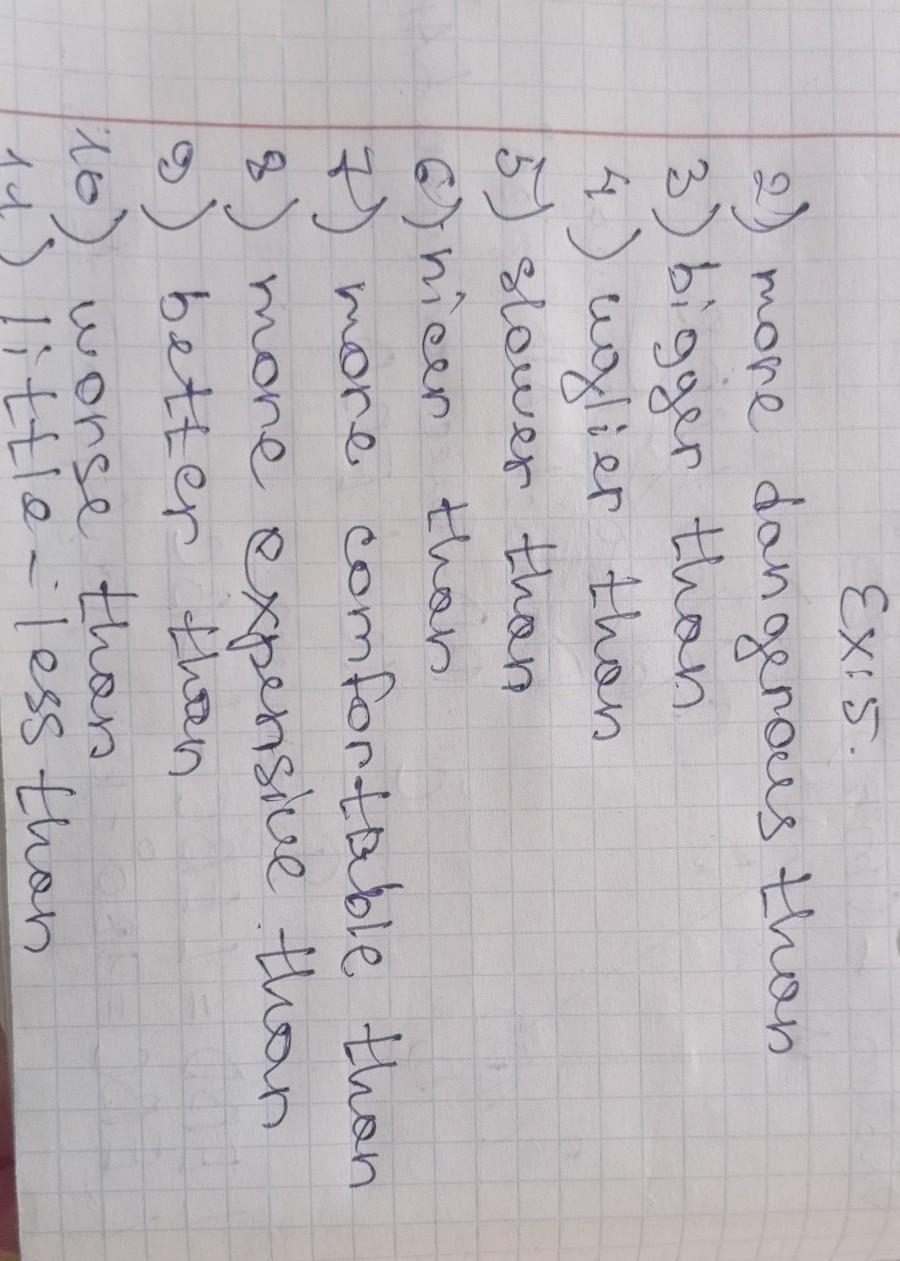 Ex: 5.
2) more dangerous than
3) bigger than
4) uglier than
5) slower than
6) nicer than
7) more comfortable than
8) more expensive than
9) better than
10) worse than
11) little - less than